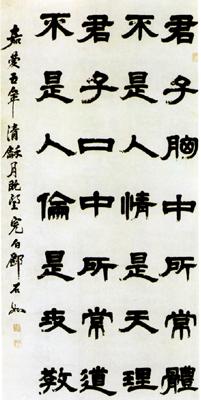 君子胸中所常體
不是人情是天理
君子口中所常道
不是人倫是世教
嘉慶五年清龢月既望完白鄧石如